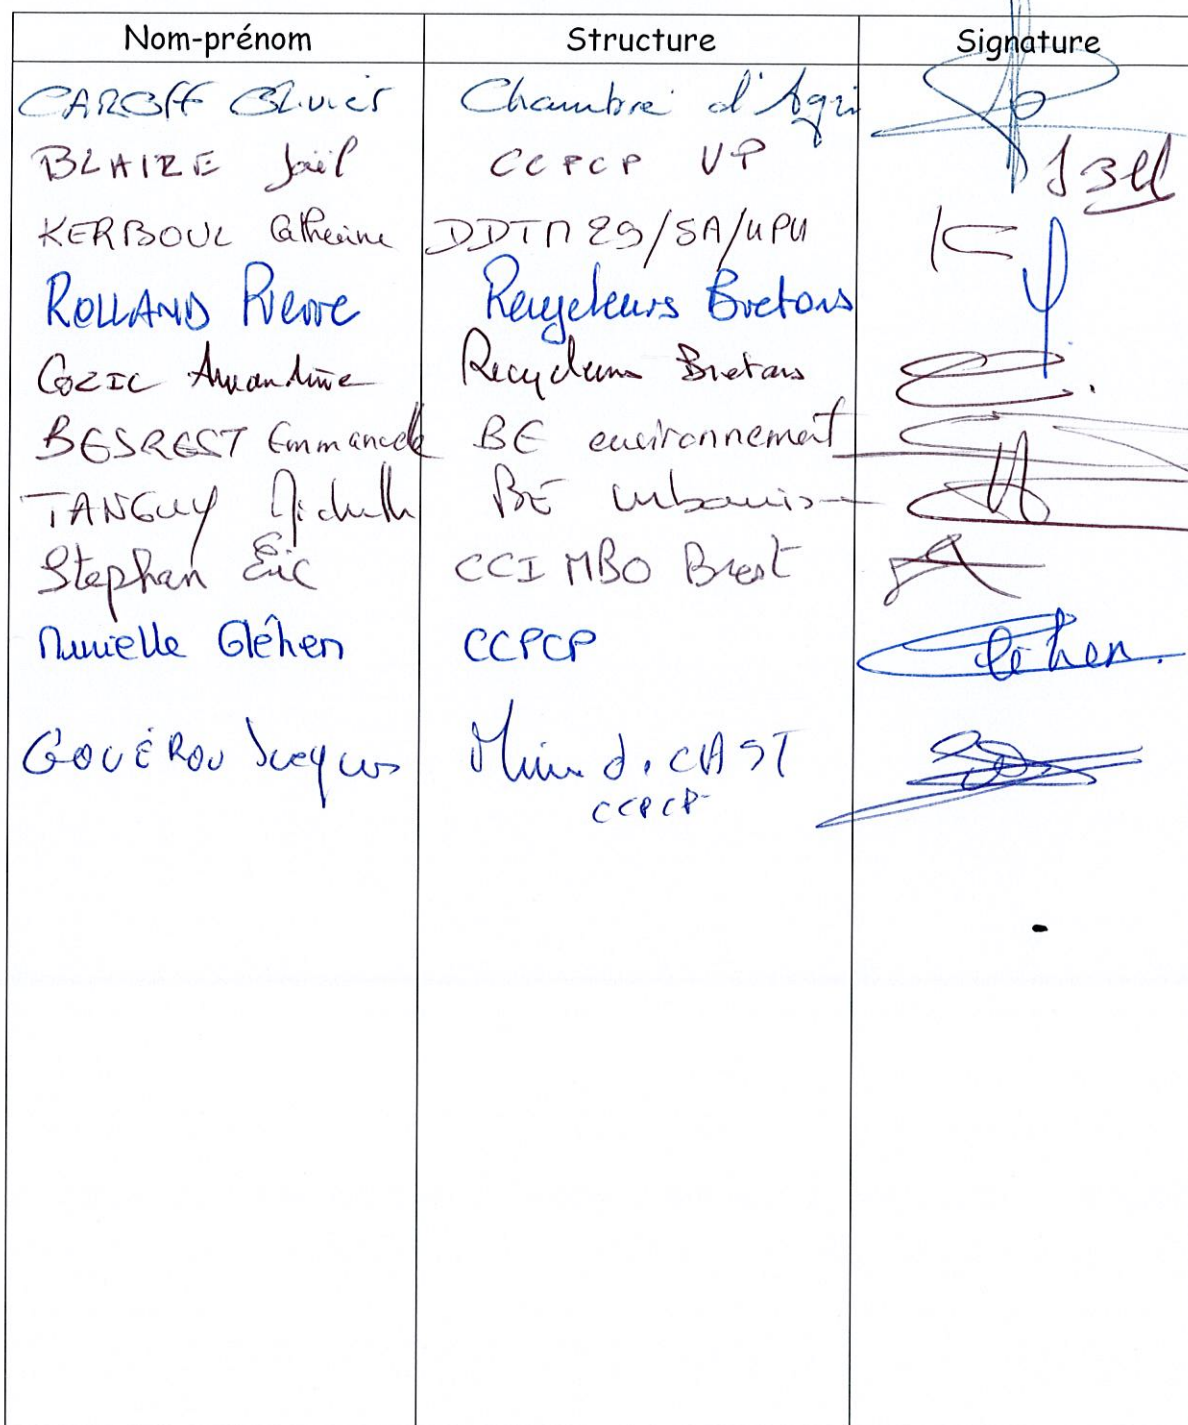 Nom-prénom Structure Signature
CAROFF Olivier Chambre d'Agri
BLAIRE Joël CCPCP VP
KERBOUL Catherine DDTM 29/SA/UPU
ROLLAND Pierre Recycleurs Bretons
COZIC Amandine Recycleurs Bretons
BESREST Emmanuelle BE environnement
TANGUY Michelle BE urbanis
Stephan Eric CCI MBO Brest
Murielle Gléhen CCPCP Gléhen.
GOUÉROU Jacques CAST
CCPCP